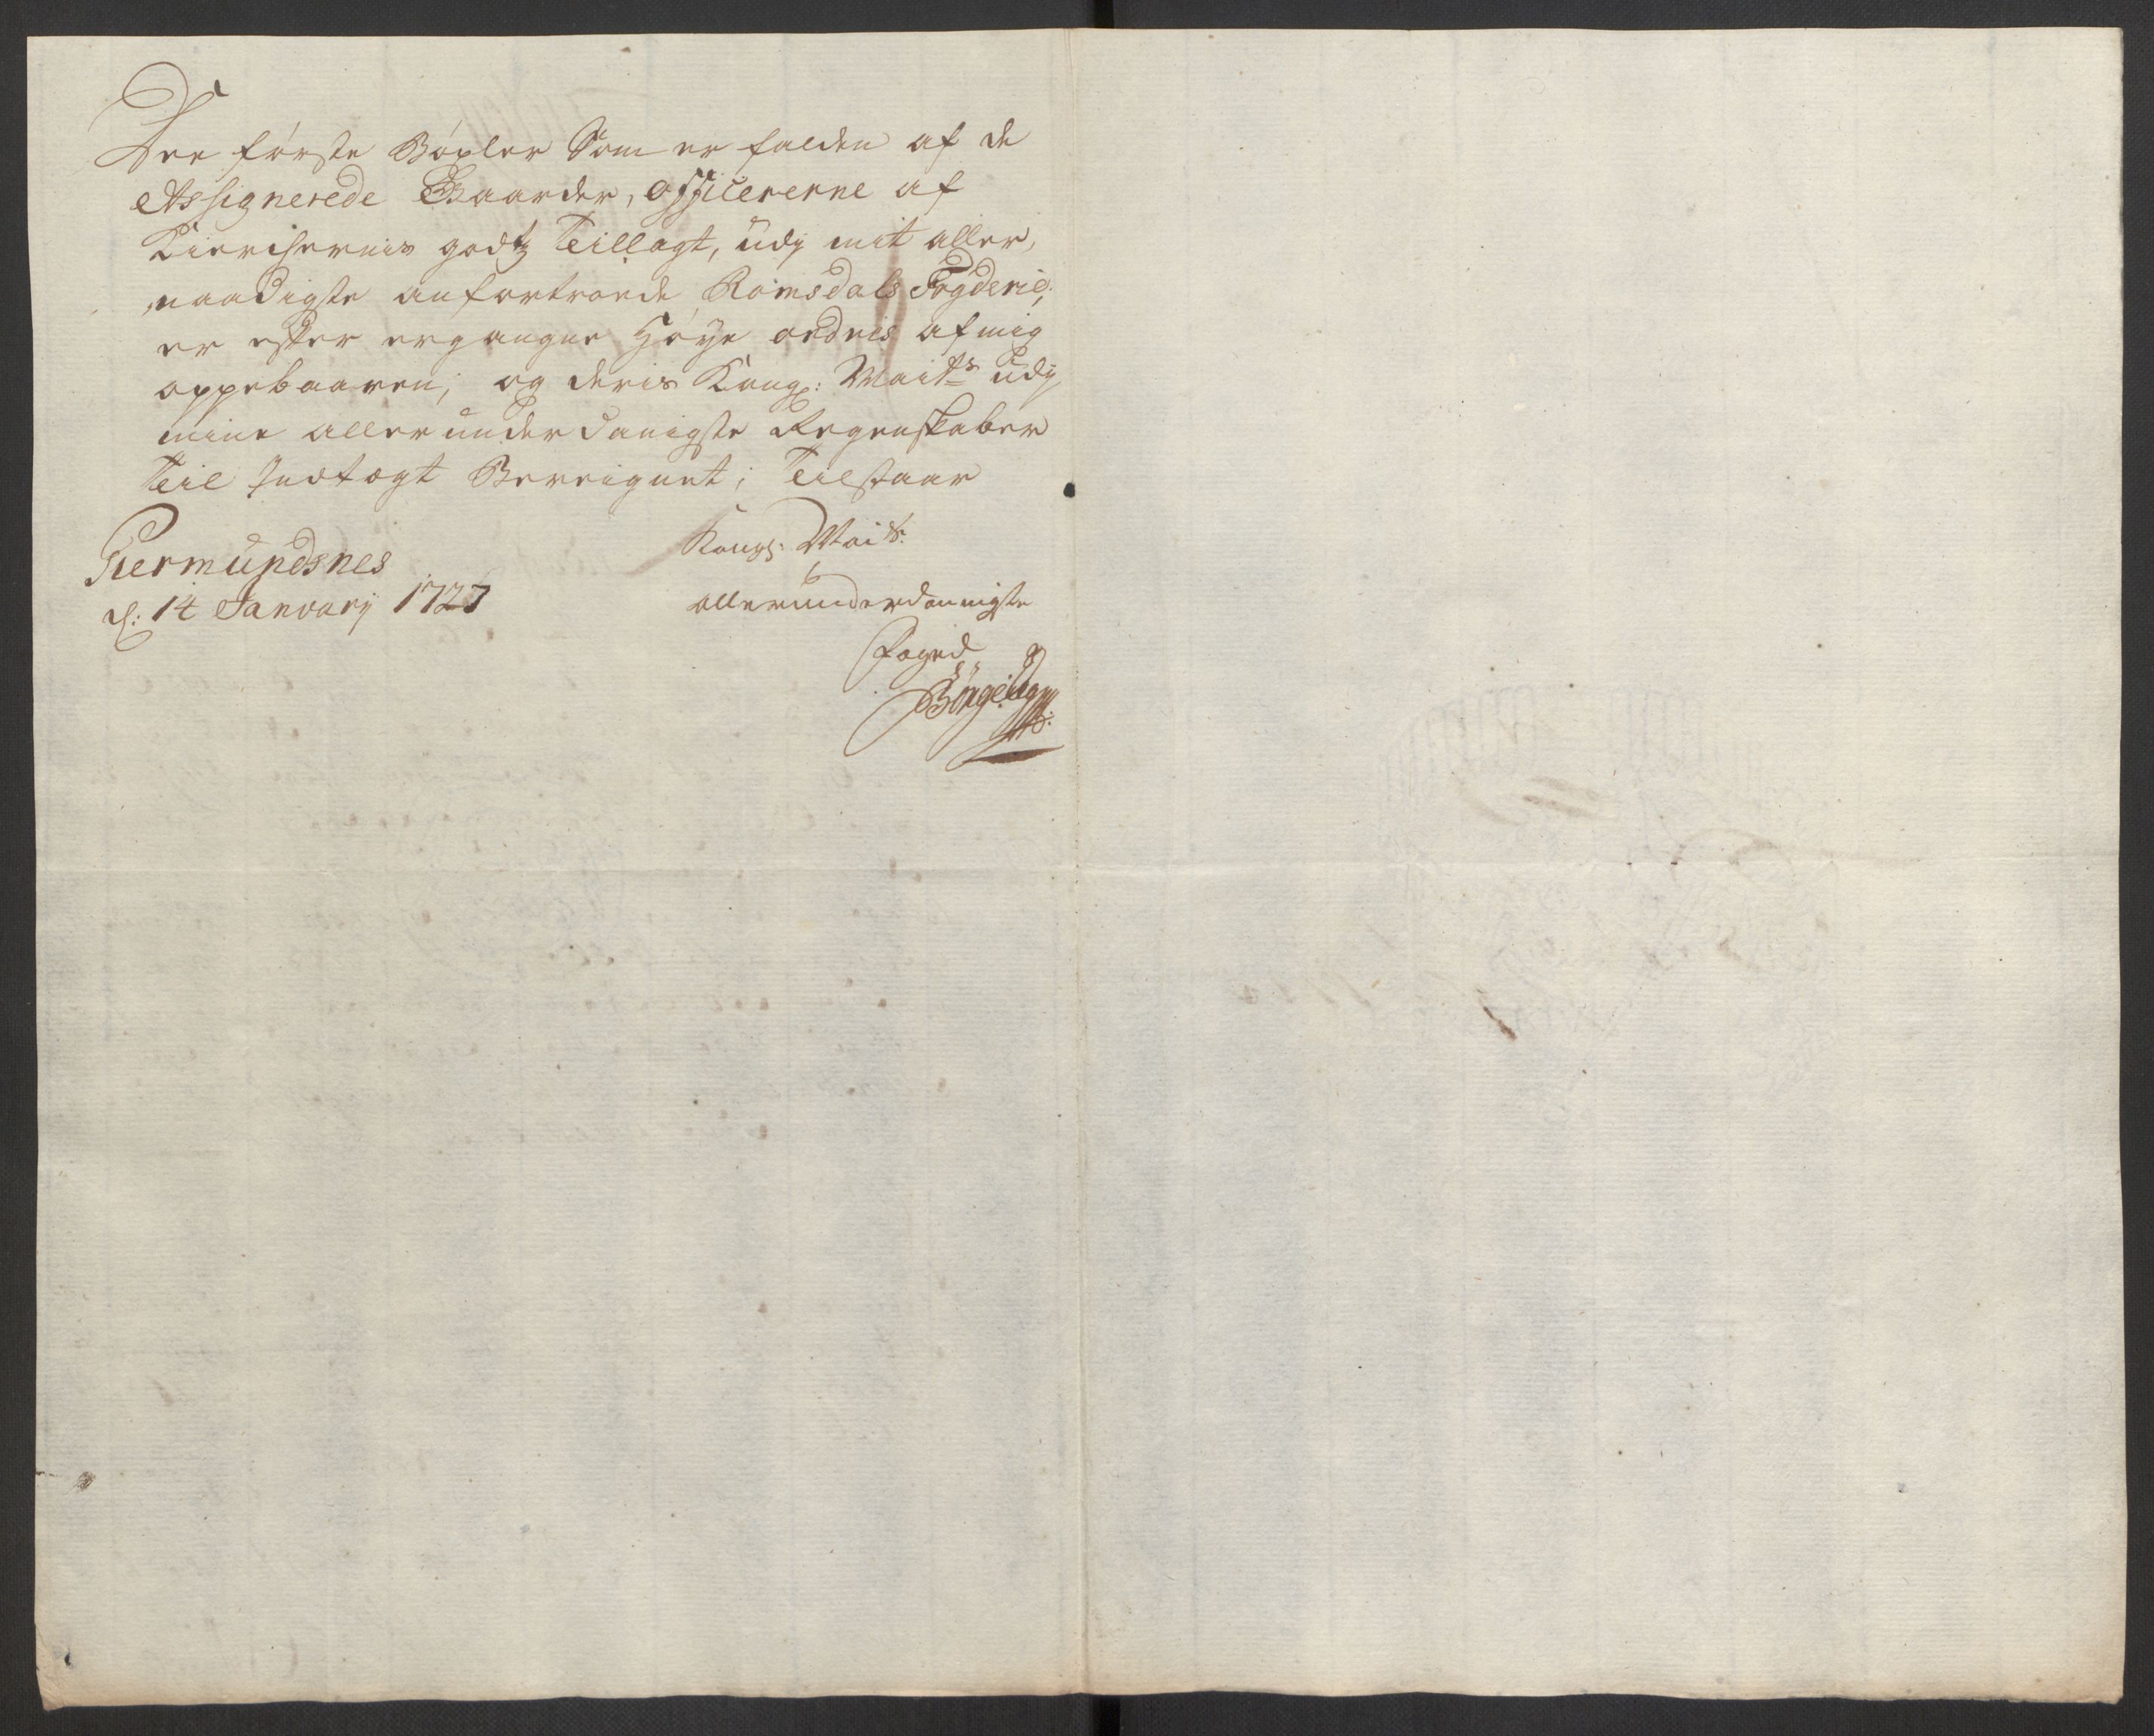 Dee første Böxler Som er falden af de
Assignerede Gaarder, officererne af
Kierchernis godtz Teillagt, udj mit aller,
naadigste anfortroede Romsdals Fogderie,
er effter ergangne Høye ordris af mig
oppebaaren; og deris Kong: Maits udj
mine allerunderdanigste Regenskaber
Teil Indtægt Bereignet; Teilstaar
Giermundsnes
d: 14 January 1727
Kongl: Maits
allerunderdannigste
Foged